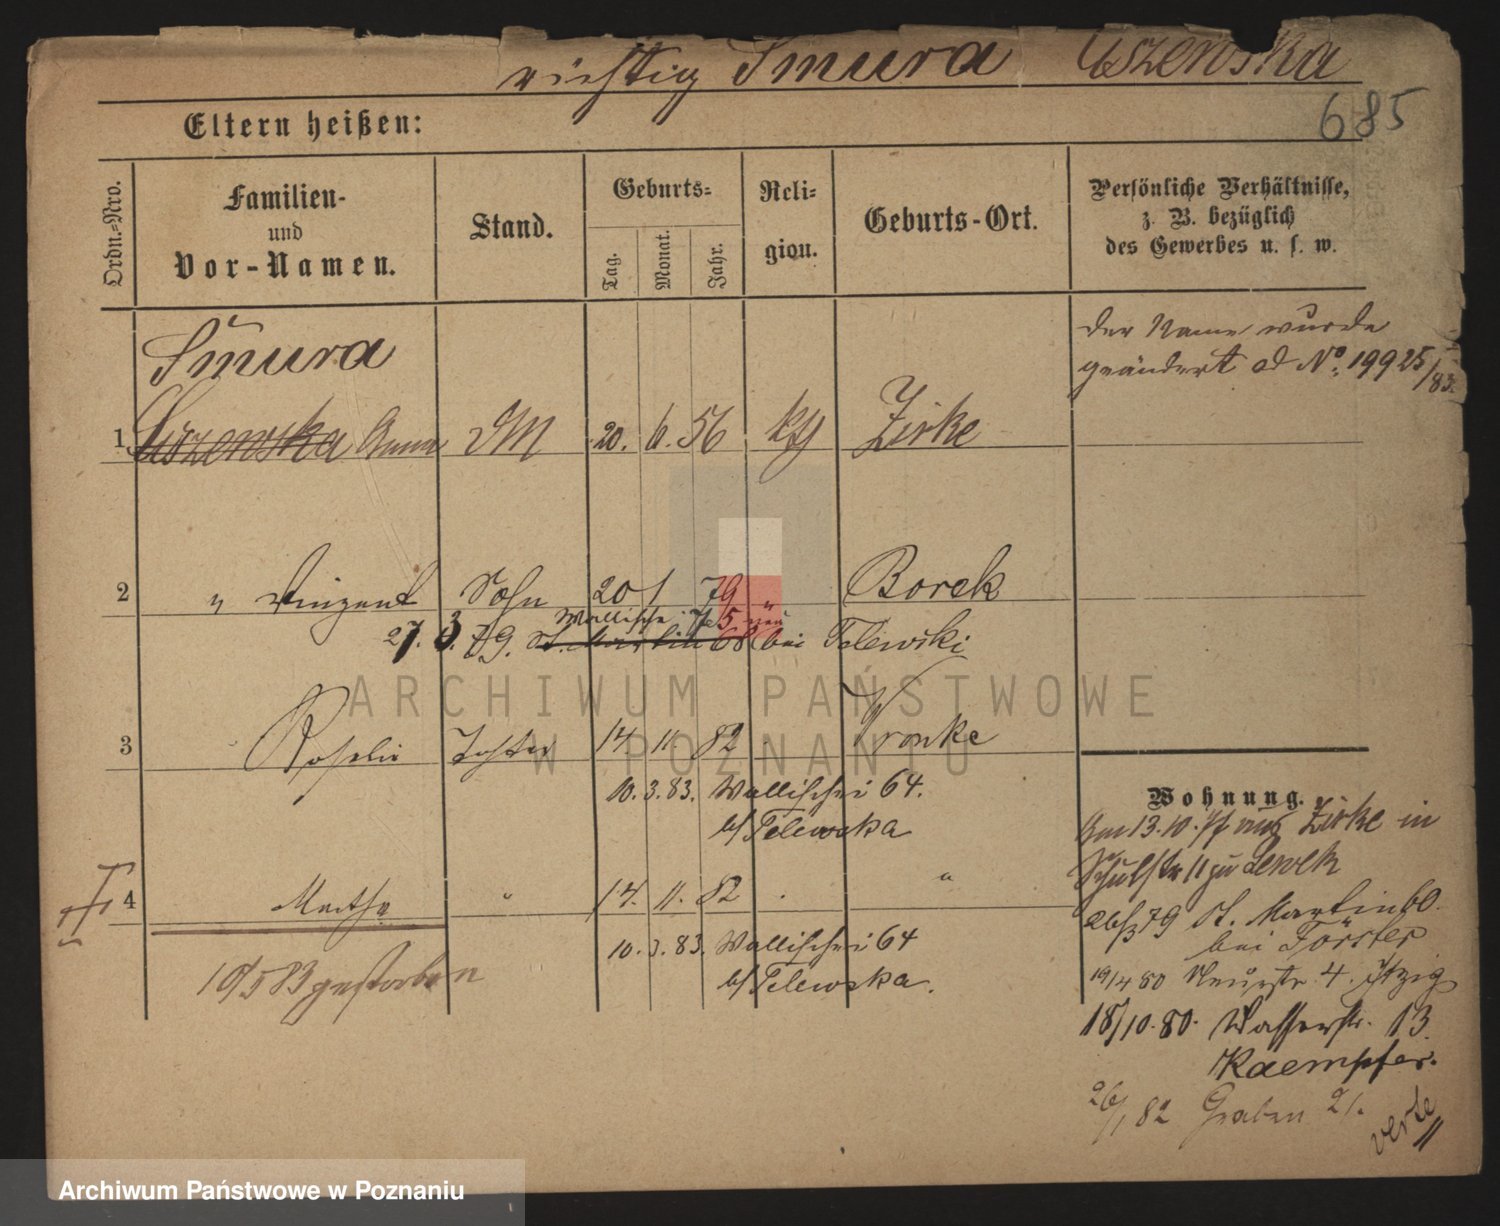 richtig Smura Uszewska
685
Eltern heißen:
Ordn.-Nro.
Familien- und Vor-Namen.
Stand.
Geburts-
Tag.
Monat.
Jahr.
Reli-gion.
Geburts-Ort.
Persönliche Verhältnisse,
z. B. bezüglich
des Gewerbes u. s. w.
Der Name wurde
geändert ad No. 19925/83.
Smura
1 Uszewska Anna DM 20. 6. 56 kth Zirke
2 " Vinzent Sohn 20 1 79 " Borek
Wallischei 75 neu
27. 3. 79. St. Martin 68 bei Telewski
3 Roselie Tochter 14 11 82 Wronke
10. 3. 83. Wallischei 64.
b/ Telewska
4 Marthe " 14. 11. 82 . "
10. 3. 83. Wallischei 64
b/ Telewska.
10/5 83 gestorben
Wohnung.
Am 13. 10. 77 aus Zirke in
Schulstr 11 zu
26/3 79 St. Martin 60.
bei Förster
19/4 80 Neuestr. 4. Itzig
18/10. 80. Wasserstr. 13.
Kaempfer.
26/1 82 Graben 21.
verte
ARCHIWUM PAŃSTWOWE
W POZNANIU
Archiwum Państwowe w Poznaniu